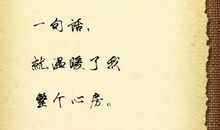 一句话，
就温暖了我
整个心房。